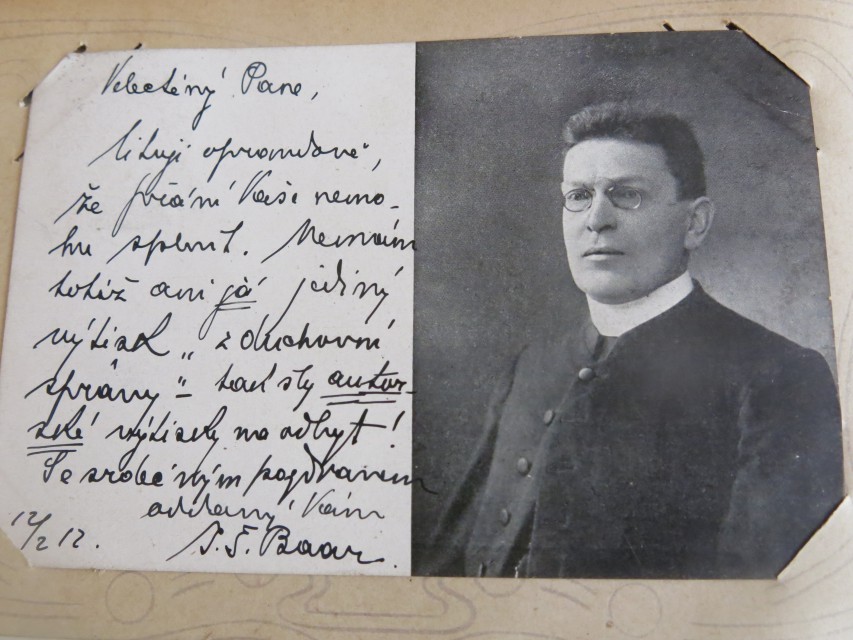 Velectěný Pane,
lituji opravdově,
že přání Vaše nemo-
hu splnit. Nemám
totiž ani já jediný
výtisk „z duchovní
správy" – tak šly autor-
ské výtisky na odbyt!
Se srdečným pozdravem
oddaný Vám
12/2 12. J. Š. Baar.